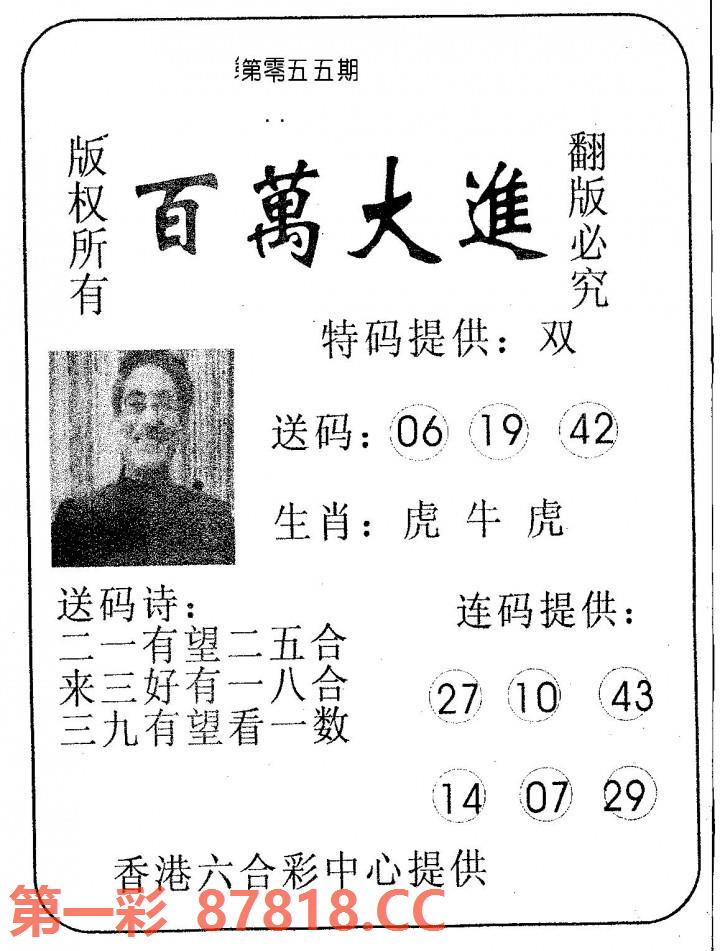 第零五五期
版权所有
百萬大進
翻版必究
特码提供：双
送码：06 19 42
生肖：虎 牛 虎
送码诗：
二一有望二五合
来三好有一八合
三九有望看一数
连码提供：
27 10 43
14 07 29
香港六合彩中心提供
第一彩 87818.CC